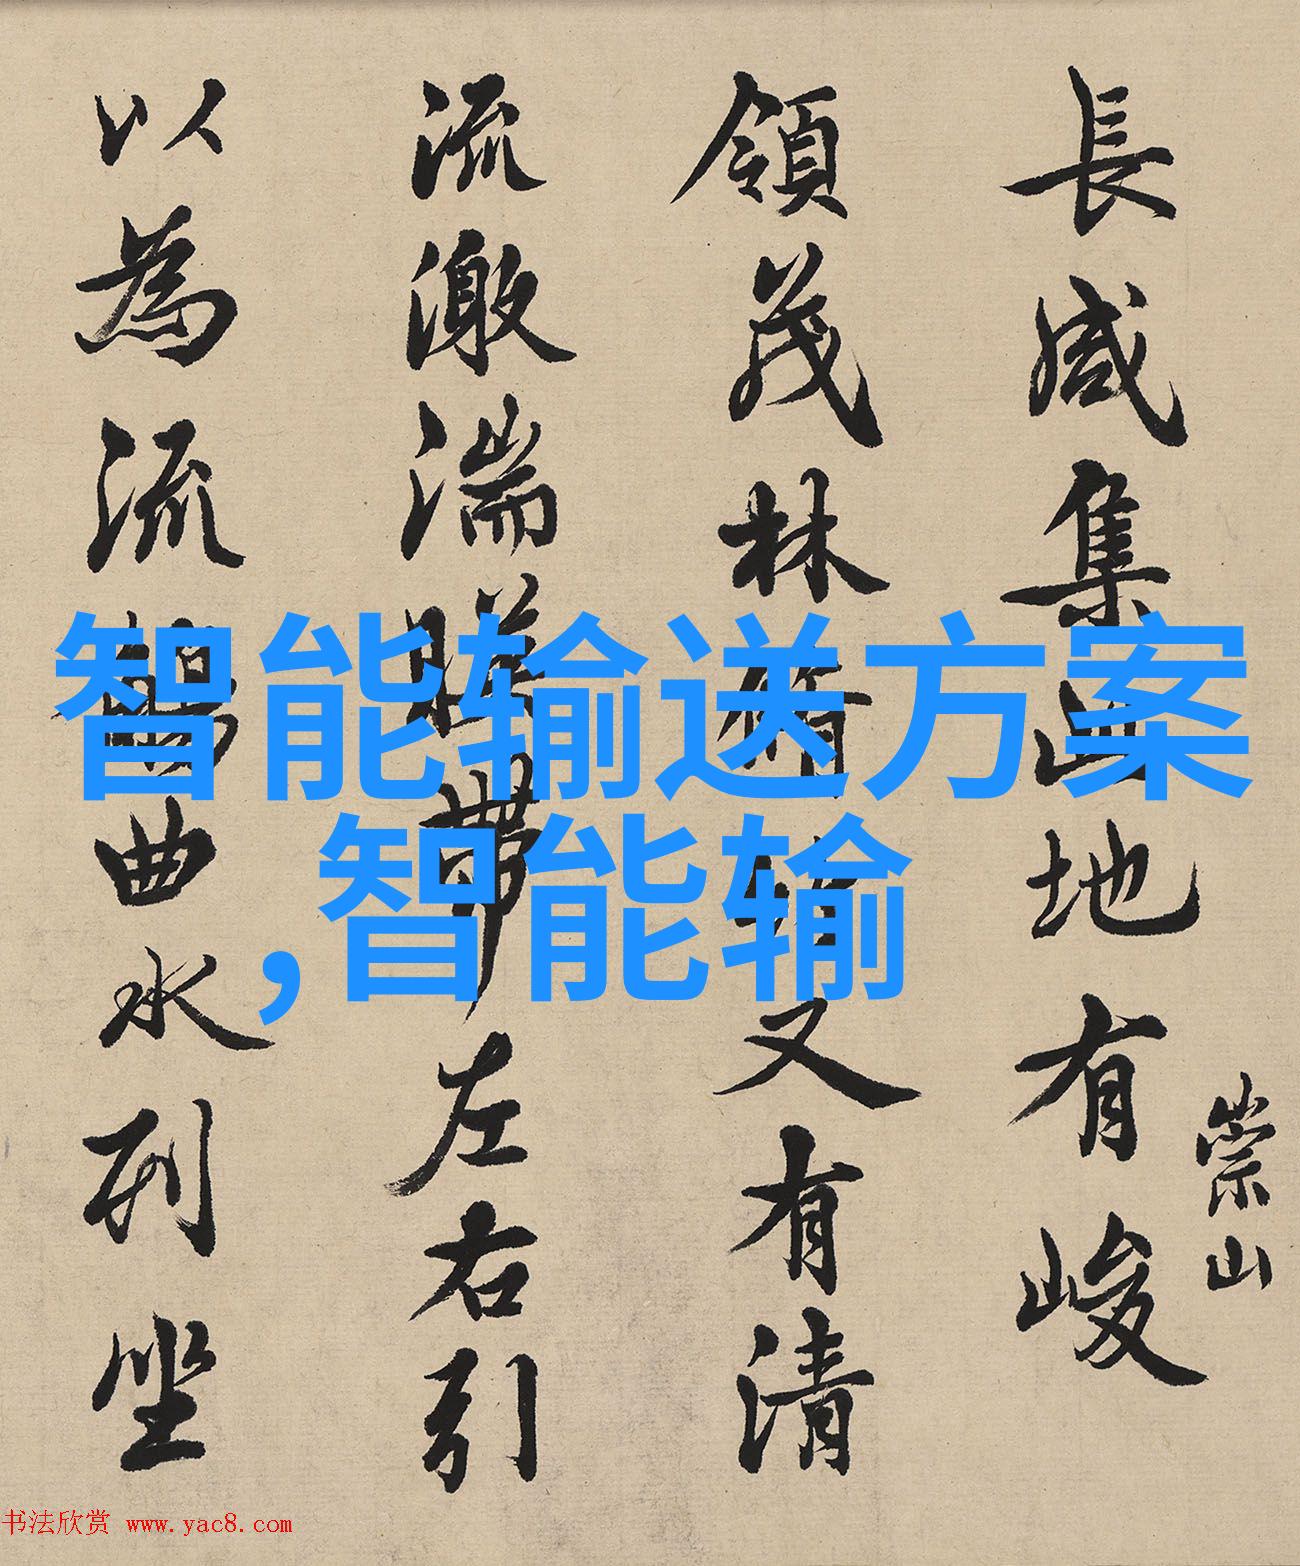 長咸集此地有峻
崇山
領茂林脩竹又有清
流激湍暎帶左右引
以為流觴曲水列坐
智能输送方案
,智能输
书法欣赏 www.yac8.com